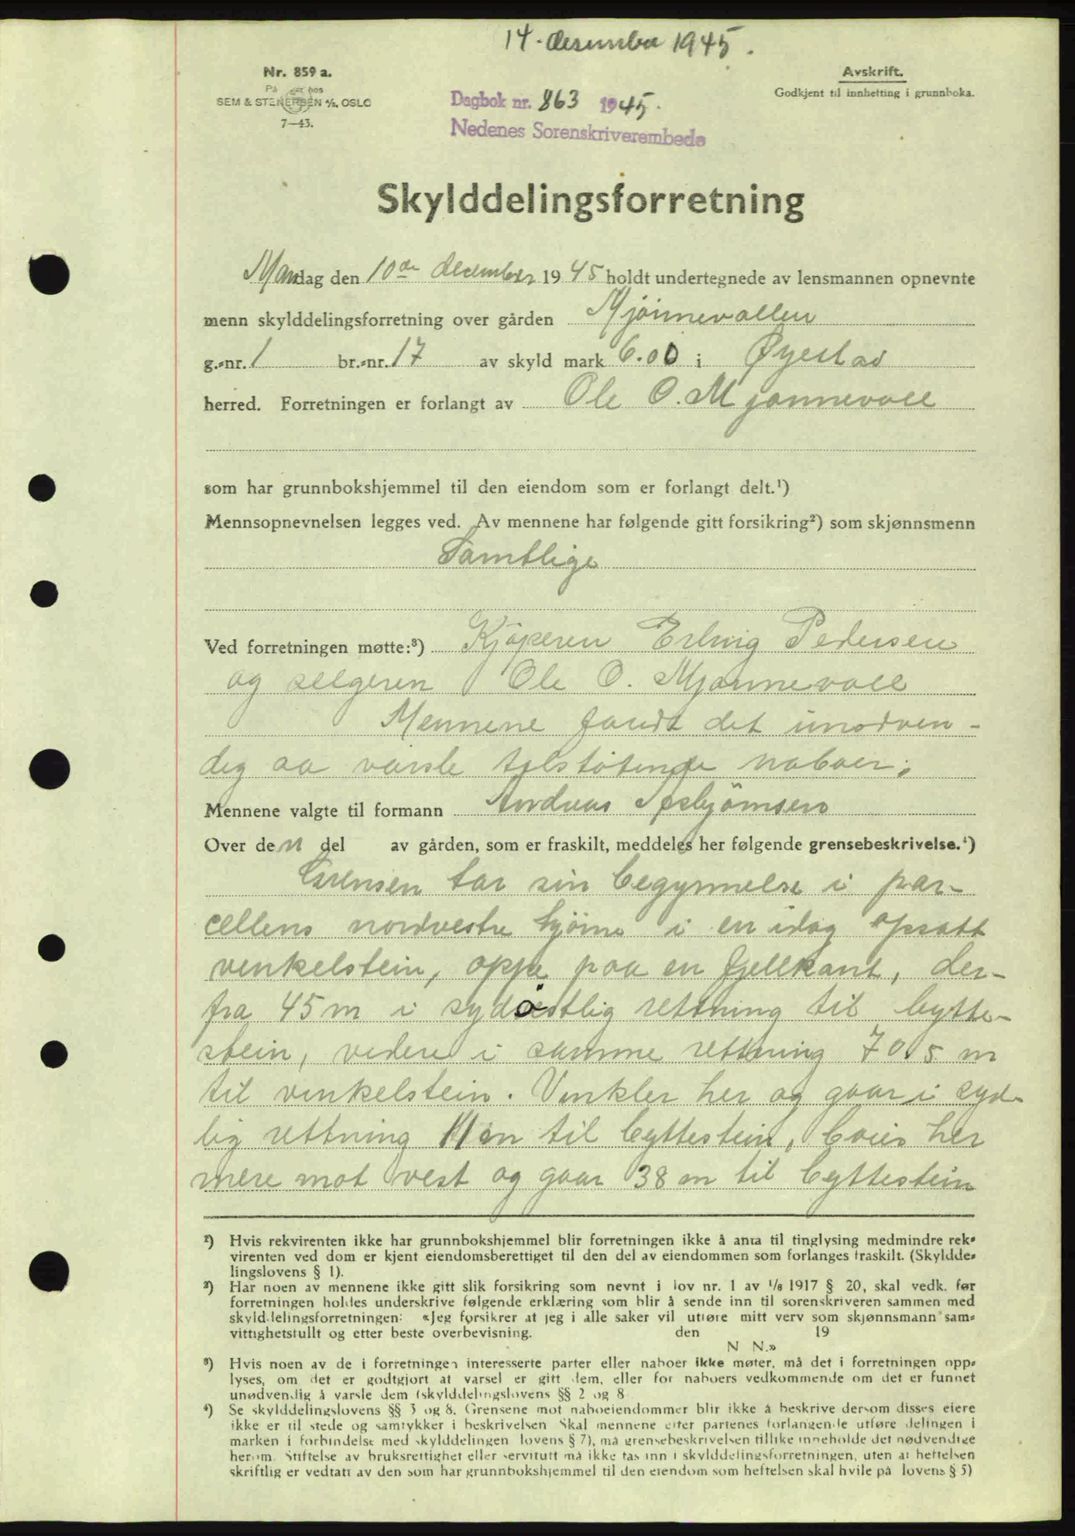 14. desember 1945.
Nr. 859 a.
På lager hos
SEM & STENERSEN A/S, OSLO
7—43.
Avskrift.
Godkjent til innhefting i grunnboka.
Dagbok nr. 863 1945.
Nedenes Sorenskriverembede
Skylddelingsforretning
Mandag den 10de december 1945 holdt undertegnede av lensmannen opnevnte
menn skylddelingsforretning over gården Mjönnevollen
g.-nr. 1 br.-nr. 17 av skyld mark 6.00 i Øyestad
herred. Forretningen er forlangt av Ole O. Mjønnevoll
som har grunnbokshjemmel til den eiendom som er forlangt delt.¹)
Mennsopnevnelsen legges ved. Av mennene har følgende gitt forsikring²) som skjønnsmenn
Samtlige
Ved forretningen møtte:³) Kjöperen Erling Pedersen
og selgeren Ole O. Mjønnevoll
Mennene fandt det unødven-
dig aa varsle tilstøtende naboer.
Mennene valgte til formann Andreas Asbjörnsen
Over den del av gården, som er fraskilt, meddeles her følgende grensebeskrivelse.⁴)
Grensen tar sin begynnelse i par-
cellens nordvestre hjörne i en idag opsatt
venkelstein, oppe paa en fjellkant, der-
fra 45 m i sydöstlig rettning til bytte-
stein, videre i samme rettning 70.5 m
til venkelstein. Vinkler her og gaar i syd-
lig rettning 11 m til byttestein, böies her
mere mot vest og gaar 38 m til byttestein
¹) Hvis rekvirenten ikke har grunnbokshjemmel blir forretningen ikke å anta til tinglysing medmindre rek-
virenten ved dom er kjent eiendomsberettiget til den del av eiendommen som forlanges fraskilt. (Skyldde-
lingslovens § 1).
²) Har noen av mennene ikke gitt slik forsikring som nevnt i lov nr. 1 av 1/8 1917 § 20, skal vedk. før
forretningen holdes underskrive følgende erklæring som blir å sende inn til sorenskriveren sammen med
skylddelingsforretningen: «Jeg forsikrer at jeg i alle saker vil utføre mitt verv som skjønnsmann sam-
vittighetsfullt og etter beste overbevisning. den 19
N N.»
³) Hvis noen av de i forretningen interesserte parter eller naboer ikke møter, må det i forretningen opp-
lyses, om det er godtgjort at varsel er gitt dem, eller for naboers vedkommende om det er funnet
unødvendig å varsle dem (skylddelingslovens §§ 2 og 8
⁴) Se skylddelingslovens §§ 3 og 8. Grensene mot naboeiendommer blir ikke å beskrive dersom disses eiere
ikke er til stede og samtykker i beskrivelsen Skal mennene etter partenes forlangende utføre delingen i
marken i forbindelse med skylddelingen lovens § 7), må grensebeskrivelsen tillike inneholde det nødvendige
herom. Stiftelse av bruksrettighet eller servitutt må ikke tas inn i skylddelingsforretningen, uten at heftelsen
skriftlig er vedtatt av den som har grunnbokshjemmel til den eiendom som heftelsen skal hvile på lovens § 5)